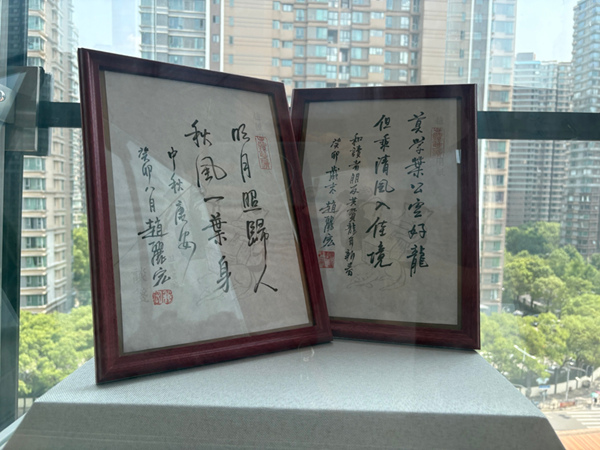 明月照歸人
秋風一葉身
中秋安
癸卯八月趙麗宏
莫學葉公空好龍
但乘清風入佳境
和讀者朋友共龍年新春
癸卯歲末趙麗宏